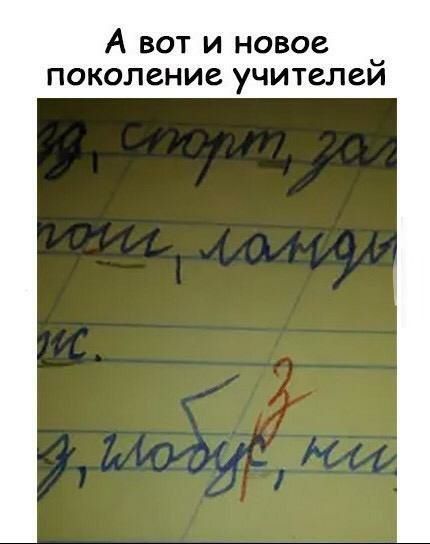 А вот и новое
поколение учителей
зд, спорт, заг
пош, ланды
ж.
з, глобус, ни
з